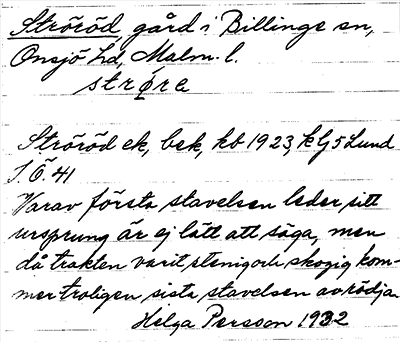 Ströröd, gård i Billinge sn,
Onsjö hd, Malm. l.
strø̨ra
Ströröd ek, bek, kb 1923, k G 5 Lund
S. Ö. 41
Varav första stavelsen leder sitt
ursprung är ej lätt att säga, men
då trakten varit stenig och skogig kom-
mer troligen sista stavelsen av rödja.
Helga Persson 1932